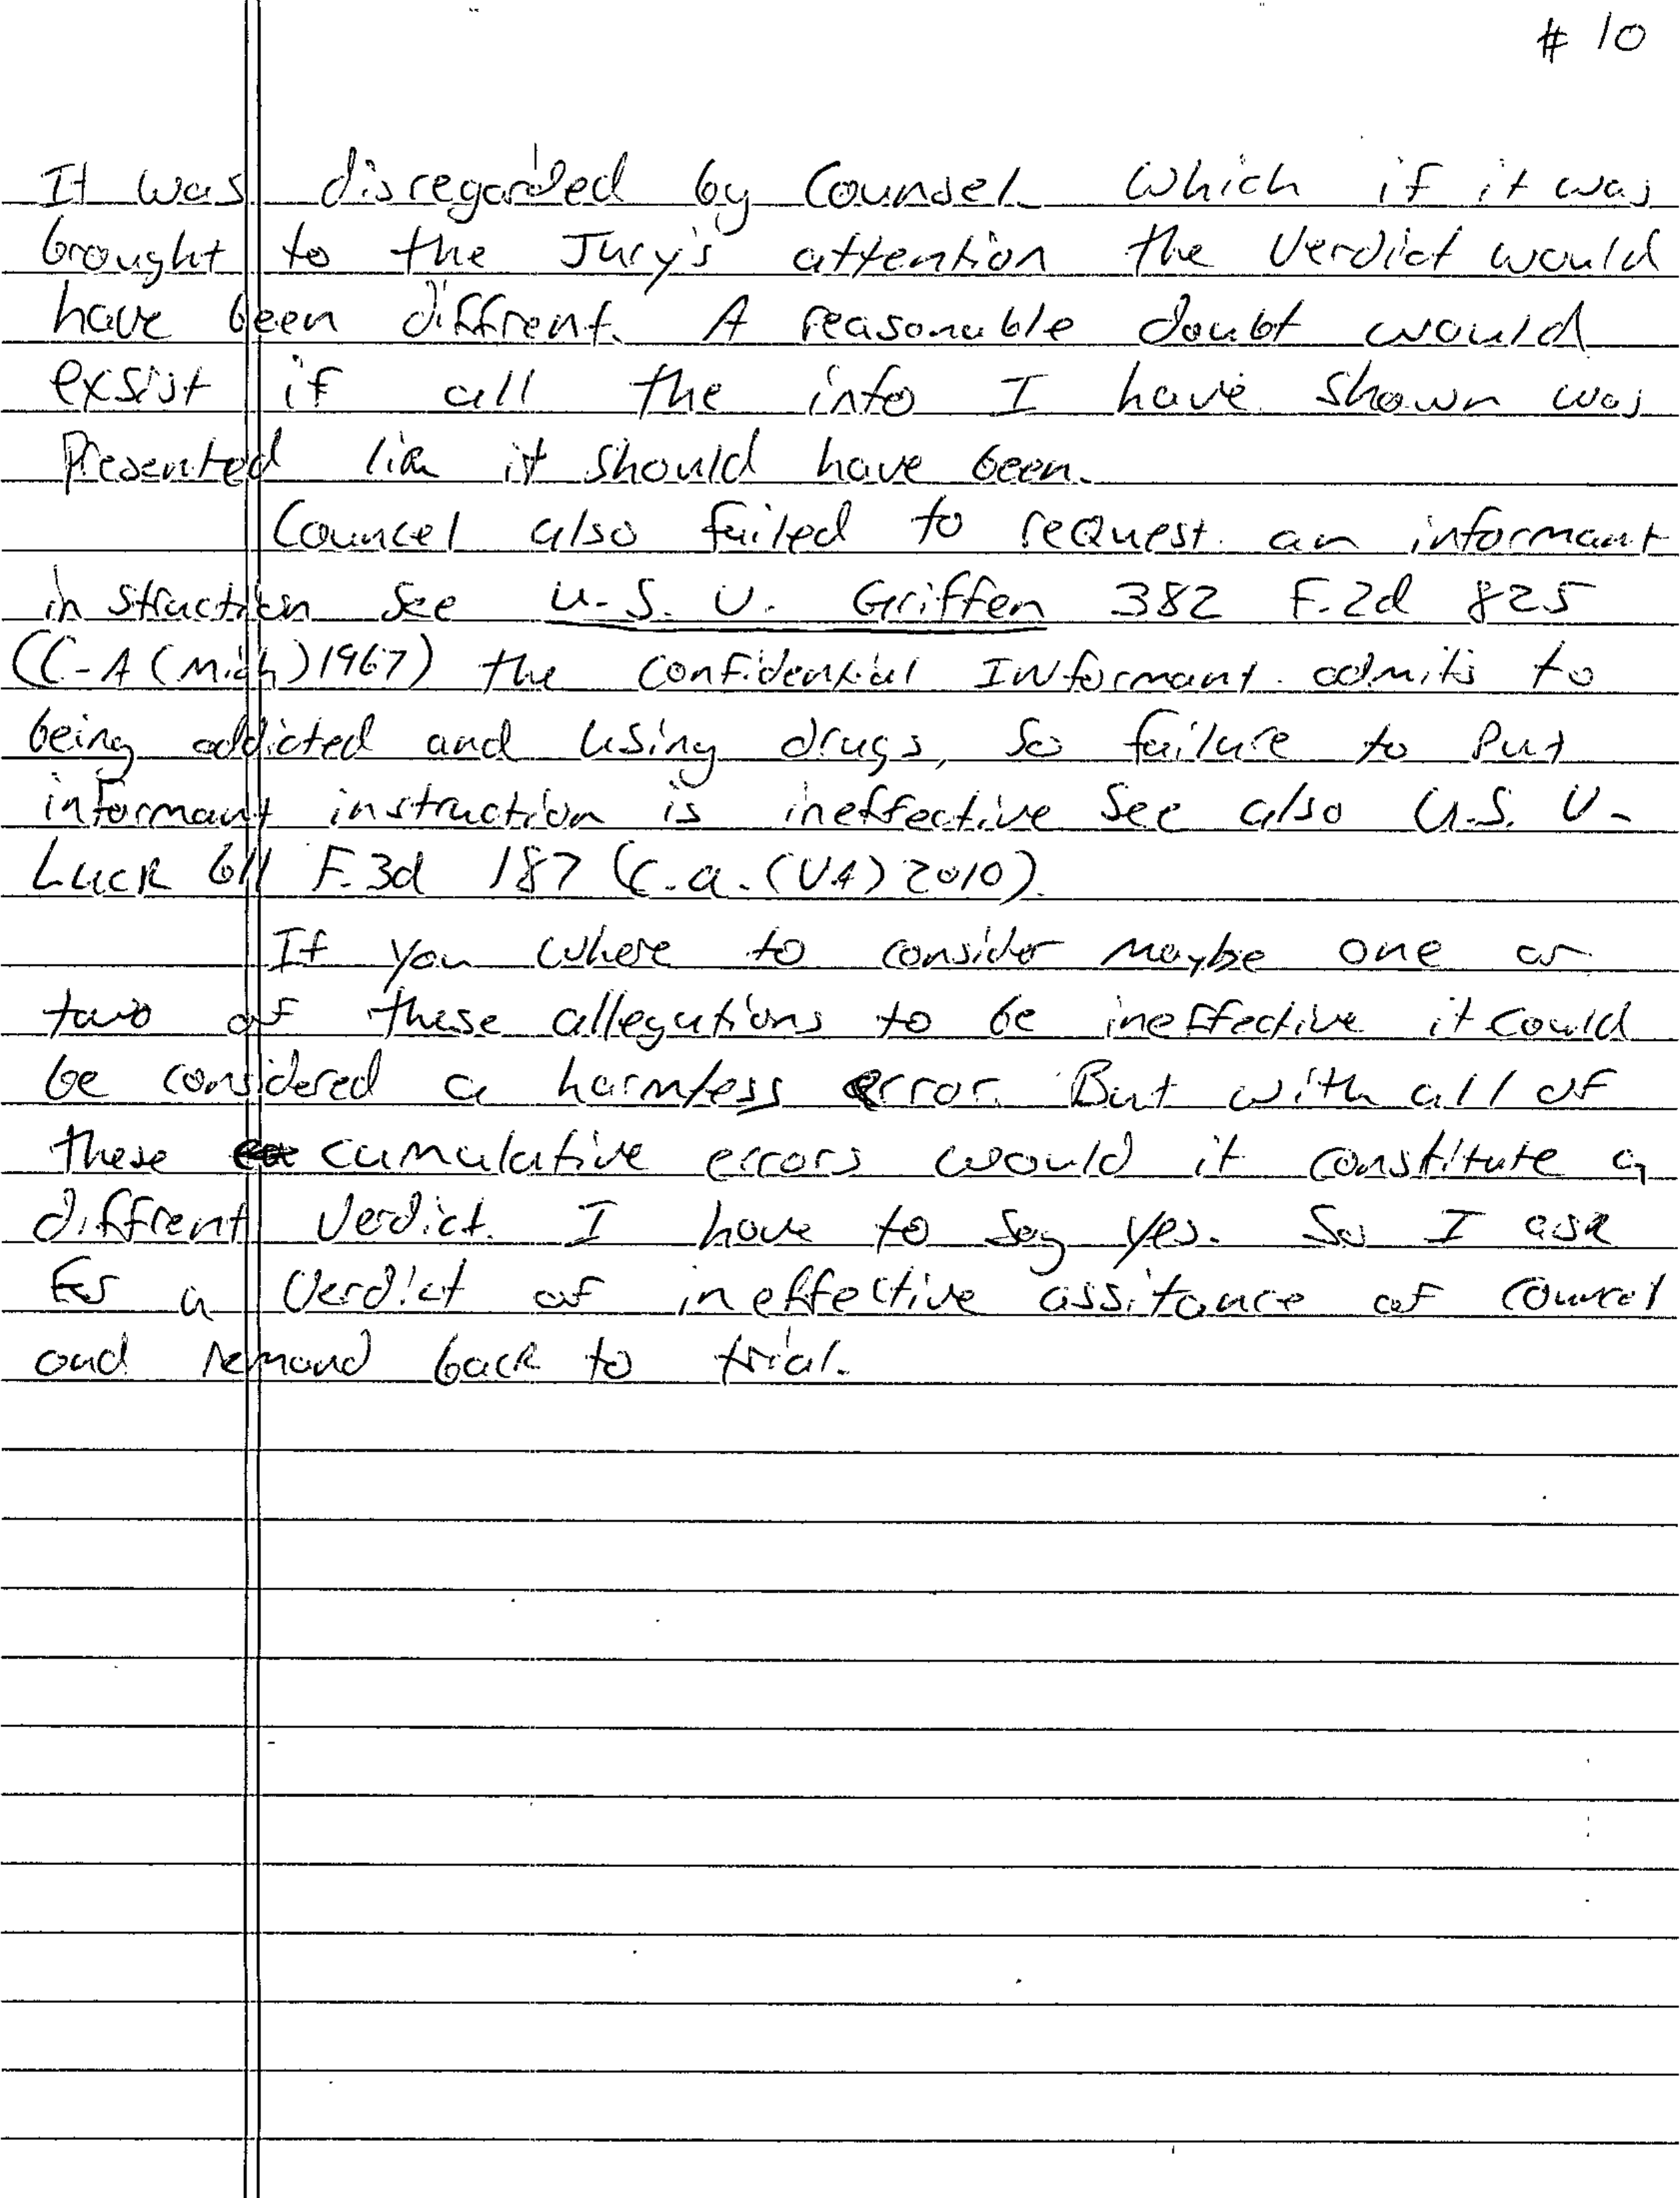 # 10
It was disregarded by Counsel. Which if it was
brought to the Jury's attention the Verdict would
have been diffrent. A reasonable doubt would
exsist if all the info I have shown was
Presented lik it should have been.
Councel also failed to request an informant
instruction see U.S. V. Griffen 382 F.2d 825
(C.A (Mich) 1967) the confidential INformant admits to
being addicted and using drugs, so failure to Put
informant instruction is ineffective See also U.S. V.
Luck 611 F.3d 187 (C.a. (VA) 2010).
If you where to consider maybe one or
two of these allegations to be ineffective it could
be considered a harmless error. But with all of
these cumulative errors would it constitute a
diffrent Verdict. I have to say yes. So I ask
For a Verdict of ineffective assitance of councel
and remand back to trial.